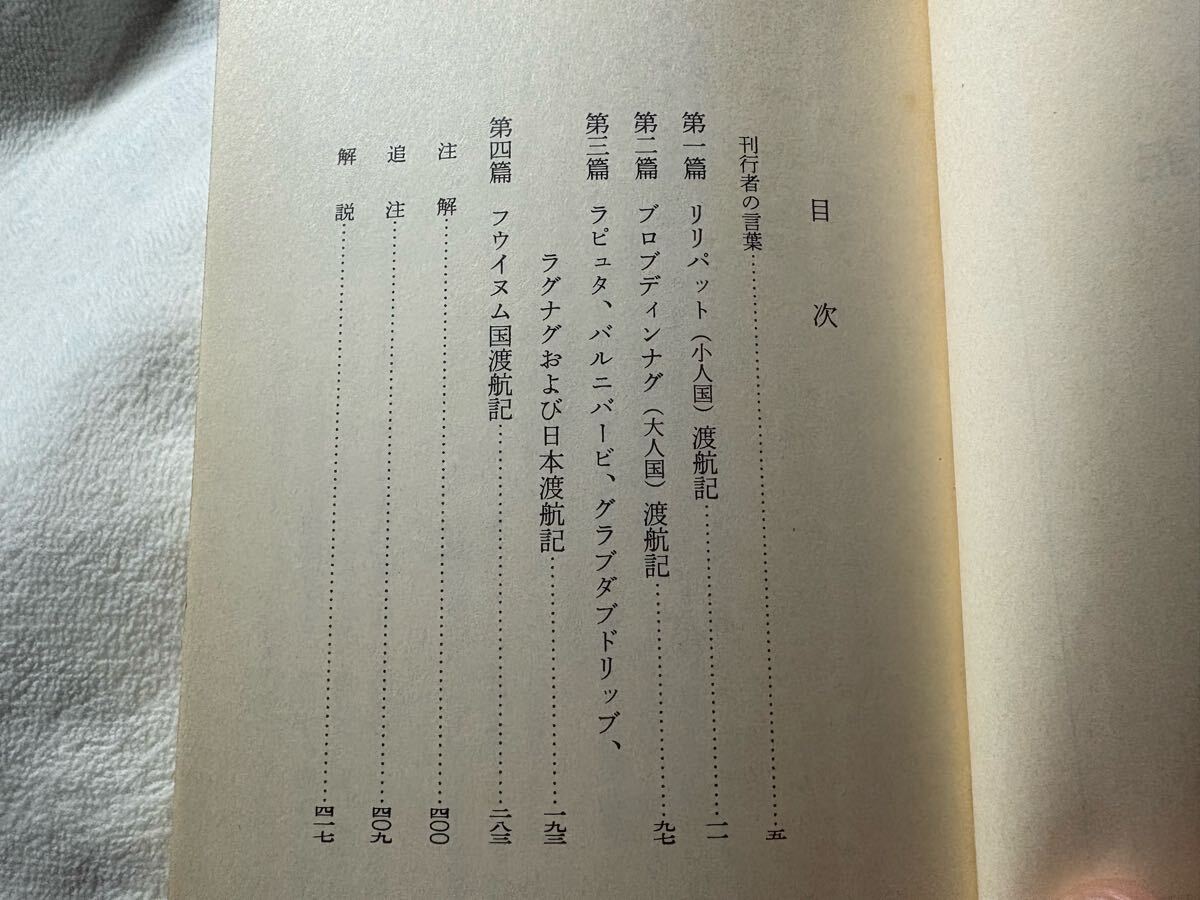 目次
刊行者の言葉……五
第一篇 リリパット（小人国）渡航記……一一
第二篇 ブロブディンナグ（大人国）渡航記……九七
第三篇 ラピュタ、バルニバービ、グラブダブドリッブ、
ラグナグおよび日本渡航記……一九三
第四篇 フウイヌム国渡航記……二八三
注解……四〇〇
追注……四〇九
解説……四一七